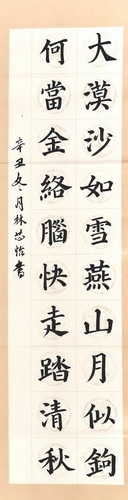 大漠沙如雪燕山月似鉤
何當金絡腦快走踏清秋
辛丑冬月林芯怡書